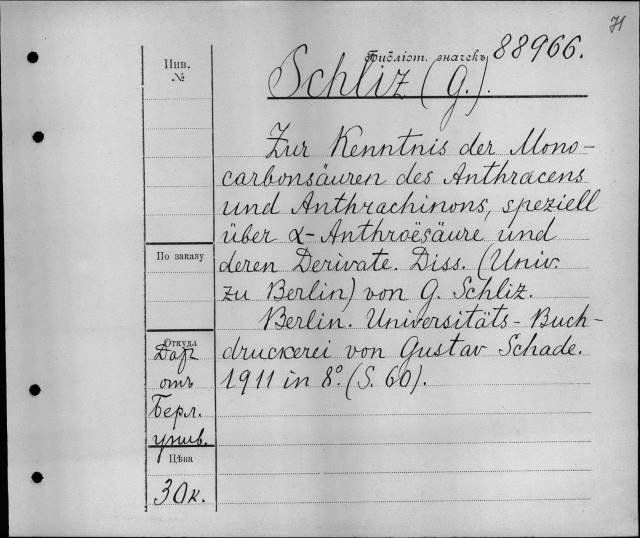 71
Библіот. значекъ 88966.
Schliz (G.).
Инв.
№
Zur Kenntnis der Mono-
carbonsäuren des Anthracens
und Anthrachinons, speziell
über α-Anthroësäure und
deren Derivate. Diss. (Univ.
zu Berlin) von G. Schliz.
Berlin. Universitäts-Buch-
druckerei von Gustav Schade.
1911 in 8º. (S. 60).
По заказу
Откуда
отъ
Берл.
унив.
Цѣна
30к.